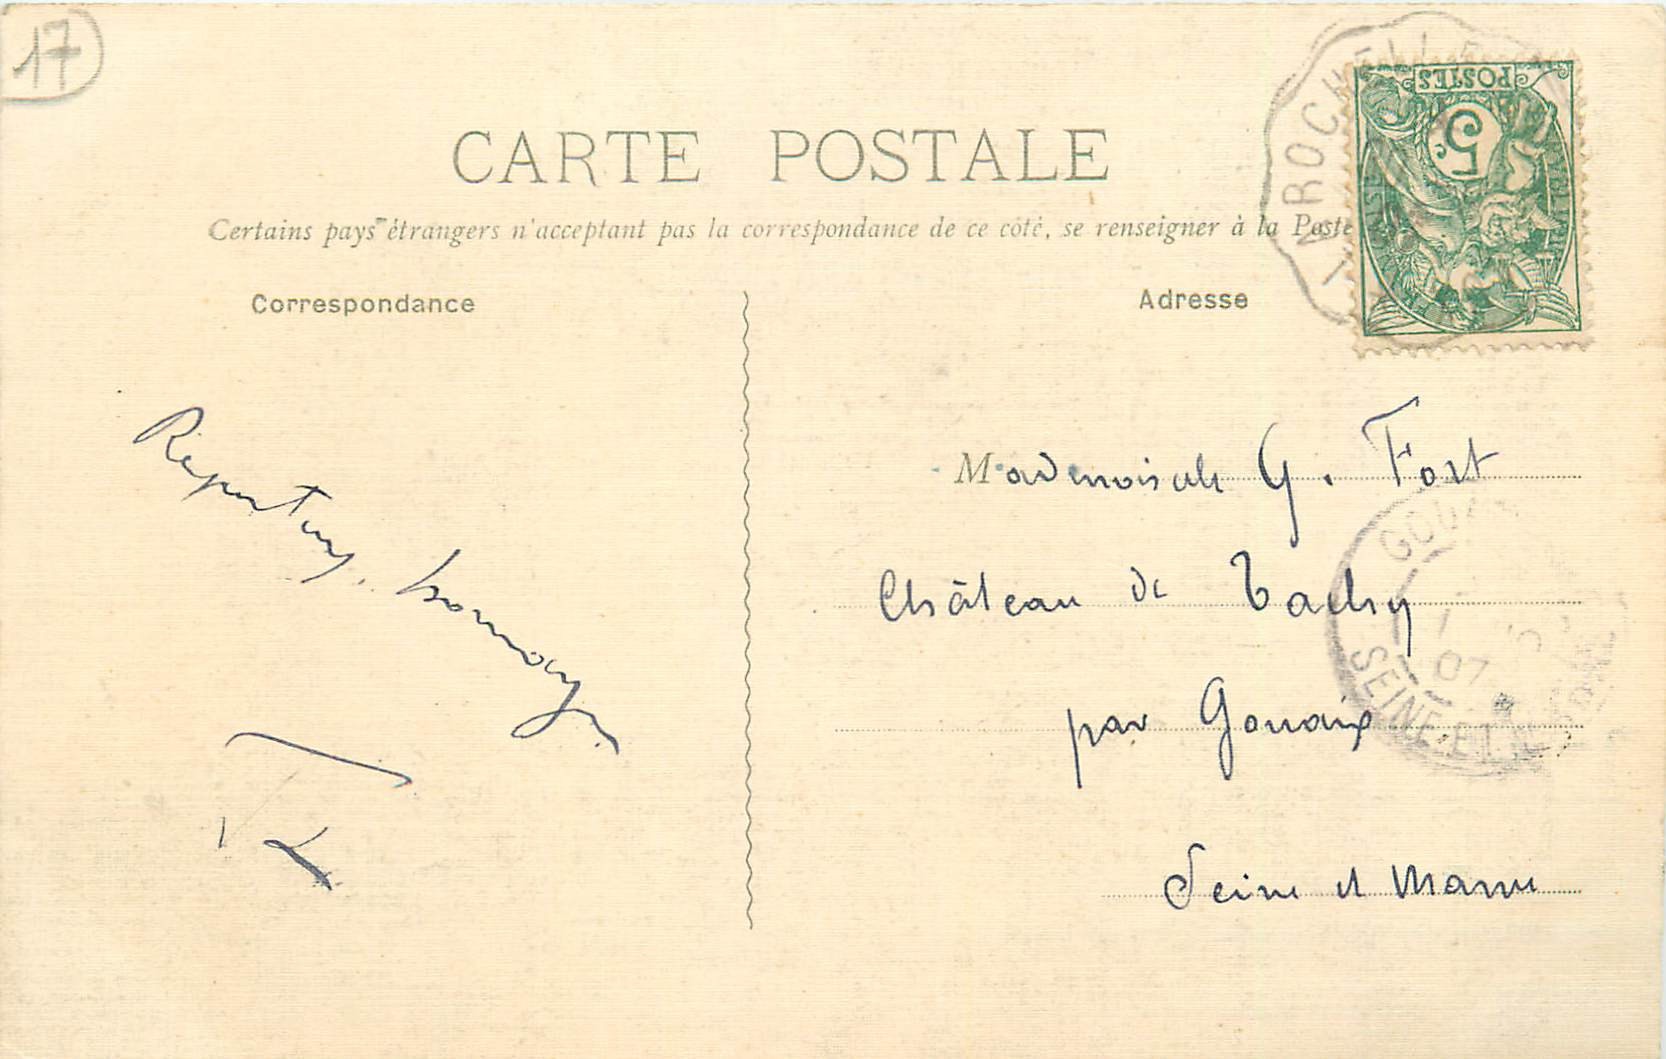 17
CARTE POSTALE
Certains pays étrangers n'acceptant pas la correspondance de ce côté, se renseigner à la Poste
Correspondance
Adresse
POSTES
5c
LA ROCHELLE
Mademoiselle G. Fort
Château de Tachy
par Gouaix
Seine et Marne
GOUAIX
07
SEINE-ET-M